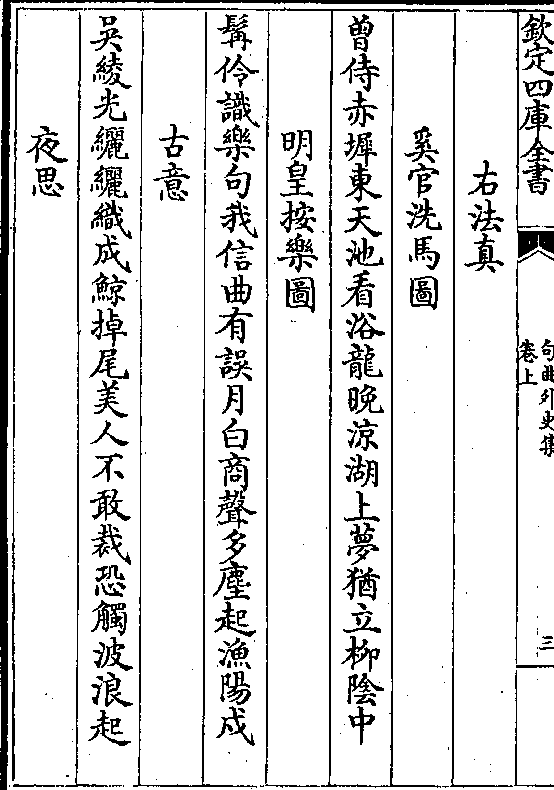 欽定四庫全書
句曲外史集
卷上
三
右法真
奚官洗馬圖
曾侍赤墀東天池看浴龍晚涼湖上夢猶立柳陰中
明皇按樂圖
髯伶識樂句我信曲有誤月白商聲多塵起漁陽戍
古意
吳綾光纚纚織成鯨掉尾美人不敢裁恐觸波浪起
夜思